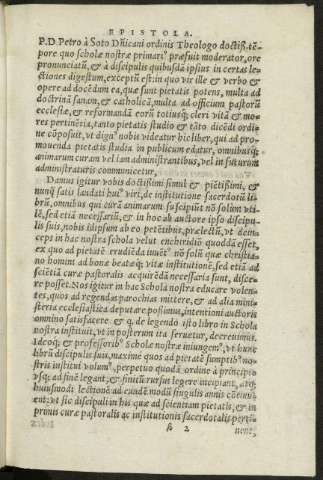 EPISTOLA.
P. D. Petro à Soto Dñicani ordinis Theologo doctiß. tẽ-
pore quo scholæ nostræ primariꝰ præfuit moderator, ore
pronunciatũ, & à discipulis quibusdã ipsius in certas le-
ctiones digestum, exceptũ est: in quo vir ille & verbo &
opere ad docẽdum ea, quæ sunt pietatis potens, multa ad
doctrinã sanam, & catholicã, multa ad officium pastorũ
ecclesiæ, & reformandã eorũ totiusq; cleri vitã & mo-
res pertinẽtia, tanto pietatis studio & tãto dicẽdi ordi-
ne cõposuit, vt dignꝰ nobis videatur hic liber, qui ad pro-
mouenda pietatis studia in publicum edatur, omnibusq;
animarum curam vel iam administrantibus, vel in futurum
administraturis communicetur,
Damus igitur vobis doctißimi simul & pijßimi, &
nunq̃ satis laudati huiꝰ viri, de institutione sacerdotũ li-
brũ, omnibus qui curã animarum suscipiũt nõ solũm vti-
lẽ, sed etiã necessariũ, & in hoc ab auctore ipso discipu-
lis suis, nobis id ipsum ab eo petẽtibus, prælectũ, vt dein-
ceps in hac nostra schola velut enchiridiõ quoddã esset,
ex quo ad pietatẽ erudiẽda iuuẽtꝰ nõ solũ quæ christia-
no homini ad bonẽ beatãq; vitæ institutionẽ, sed etiã ad
sciẽtiã curæ pastoralis acquirẽdã necessaria sunt, disce-
re posset. Nos igitur in hac Schola nostra educare volen-
tes, quos ad regendas parochias mittere, & ad alia mini-
steria ecclesiastica deputare possimus, intentioni auctoris
omnino satisfacere & q. de legendo isto libro in Schola
nostra instituit, vt in posterum ita seruetur, decreuimus.
Ideoq; & professoribꝰ Scholæ nostræ iniungimꝰ, vt hunc
librũ discipulis suis, maxime quos ad pietatẽ sumptibꝰ no-
stris institui volumꝰ, perpetuo quodã ordine à principio
vsq; ad finẽ legant, & finitũ rursus legere incipiant, atq;
huiusmodi lectionẽ ad eundẽ modũ singulis annis cõtinu-
ent: vt sic discipuli in his quæ ad scientiam pietatis, & in
primis curæ pastoralis ac institutionis sacerdotalis perti-
2
nent,